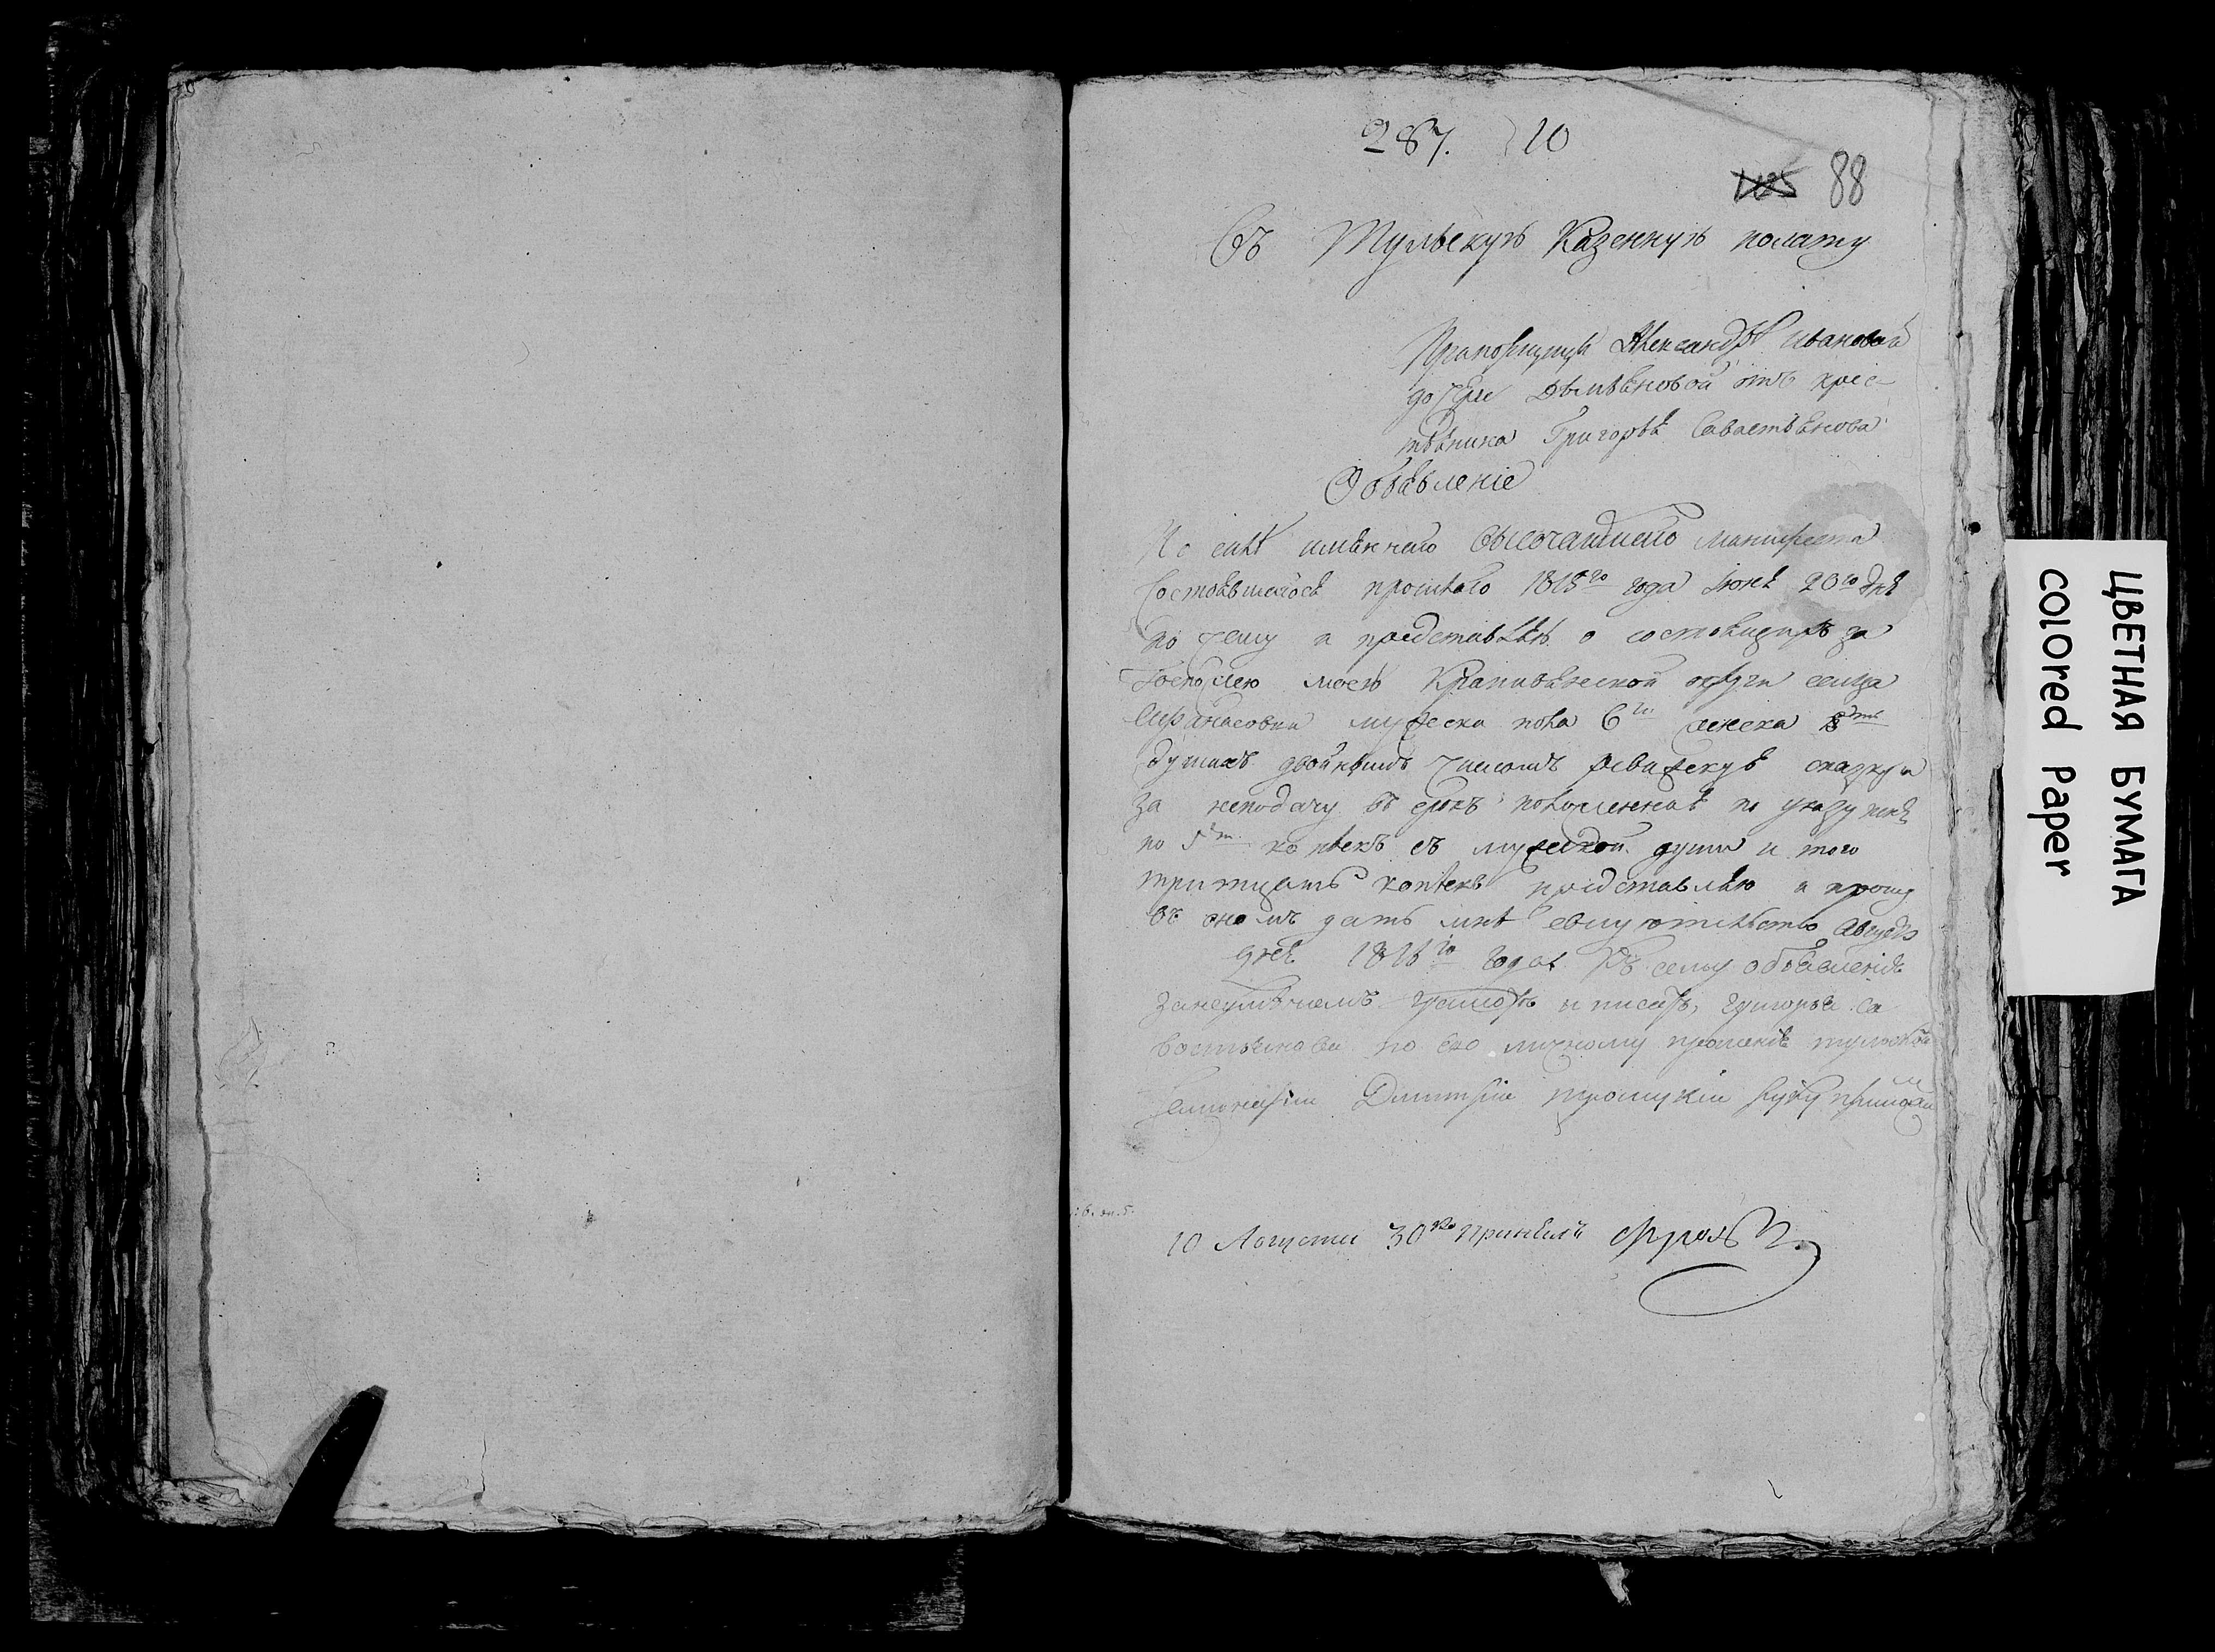 287. 10
1125 88
Въ Тульскую Казенную полату
Прапорщицы Александры Ивановой
дочери Демьяновой отъ крес-
тьянина Григорья Савастьянова
Объявленіе
По силѣ имяннаго высочайшаго манифеста
Состоявшагося прошлаго 1815го года Июня 20го дня
по чему и представляя о состоящихъ за
Госпожею моею Крапивенской округи сельца
мужеска пола 6ти женска
душахъ двойнымъ числомъ ревизскую сказку и
за неподачу въ срокъ положенныя по указу пени
по 5ти копѣекъ съ мужеской души и того
тритцать копѣекъ представляю и прошу
въ ономъ дать мнѣ Августа
дня 1816го года Къ сему объявленію
занеумѣніемъ грамотѣ и писать, григорья са
востьянова по ево личному прошенію тульской
Дмитрій руку приложилъ
10 Августа 30 ко Принялъ Фролъ
ЦВЕТНАЯ БУМАГА
COLORED PAPER